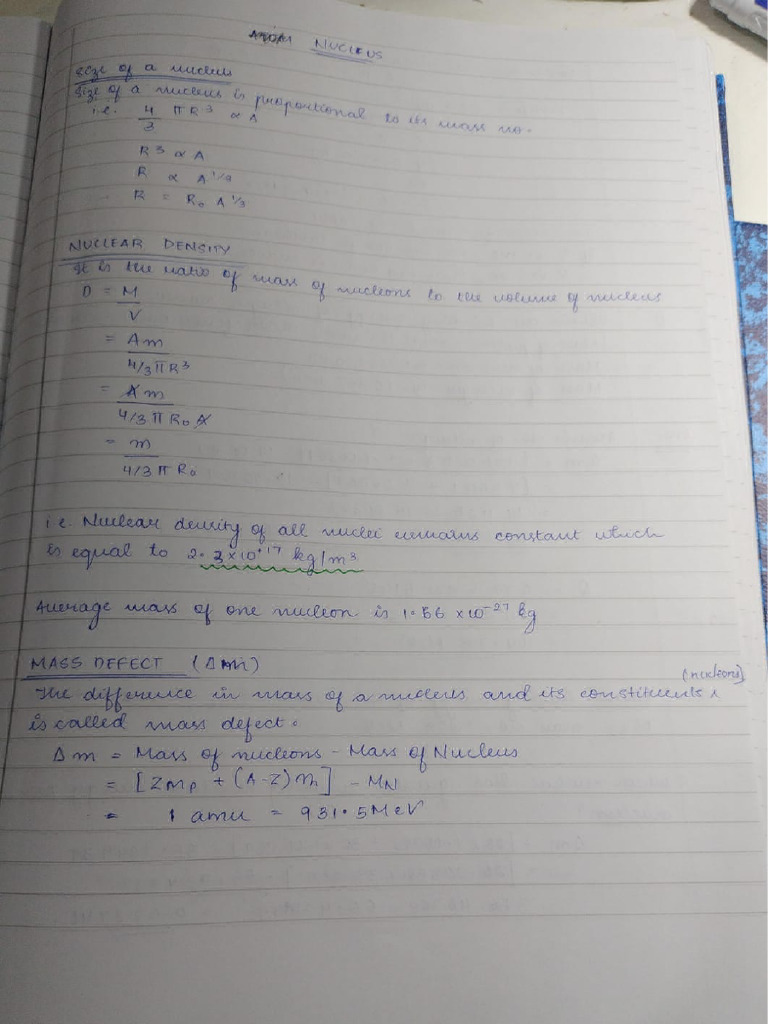 ATOM NUCLEUS
Size of a nucleus
Size of a nucleus is proportional to its mass no.
i.e. 4/3 πR³ ∝ A
R³ ∝ A
R ∝ A^1/3
R = R₀ A^1/3
NUCLEAR DENSITY
It is the ratio of mass of nucleons to the volume of nucleus
D = M/V
= Am / 4/3 πR³
= Am / 4/3 π R₀ A
= m / 4/3 π R₀
i.e. Nuclear density of all nuclei remains constant which
is equal to 2.3×10^17 kg/m³
Average mass of one nucleon is 1.66 ×10⁻²⁷ kg
MASS DEFECT (Δm)
(nucleons)
The difference in mass of a nucleus and its constituents
is called mass defect.
Δm = Mass of nucleons - Mass of Nucleus
= [Zmp + (A-Z)mn] - MN
= 1 amu = 931.5MeV